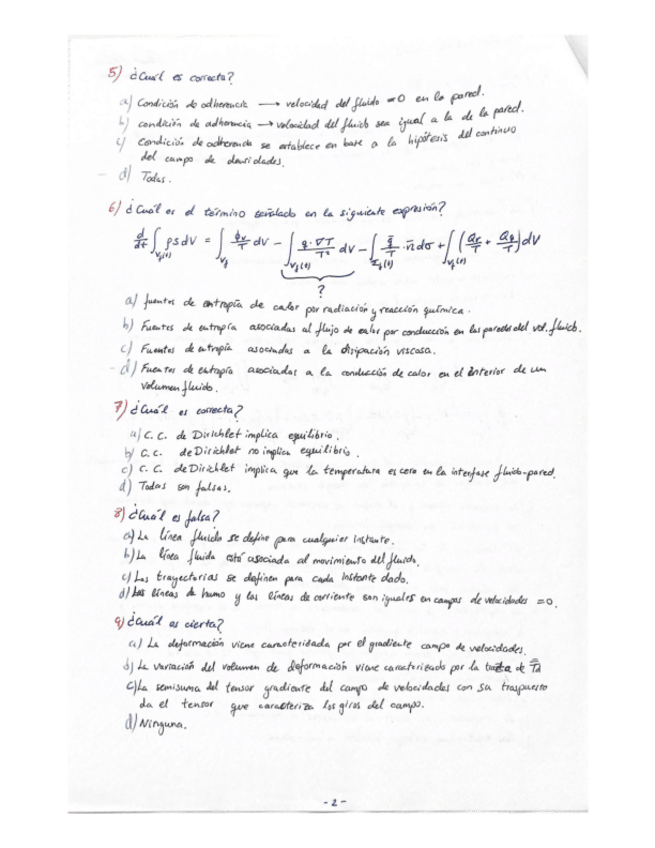 5) ¿Cuál es correcta?
a) Condición de adherencia → velocidad del fluido = 0 en la pared.
b) condición de adherencia → velocidad del fluido sea igual a la de la pared.
c) Condición de adherencia se establece en base a la hipótesis del continuo
del campo de densidades.
- d) Todas.
6) ¿Cuál es el término señalado en la siguiente expresión?
d/dt ∫_{V_f(t)} ρs dV = ∫_{V_f} ϕ_v/T dV - ∫_{V_f(t)} q·∇T/T² dV - ∫_{Σ_f(t)} q̄/T · n̄ dσ + ∫_{V_f(t)} (Q_r/T + Q_q/T) dV
?
a) fuentes de entropía de calor por radiación y reacción química.
b) Fuentes de entropía asociadas al flujo de calor por conducción en las paredes del vol. fluido.
c) Fuentes de entropía asociadas a la disipación viscosa.
- d) Fuentes de entropía asociadas a la conducción de calor en el interior de un
volumen fluido.
7) ¿Cuál es correcta?
a) C.C. de Dirichlet implica equilibrio.
b) C.C. de Dirichlet no implica equilibrio.
c) C.C. de Dirichlet implica que la temperatura es cero en la interfase fluido-pared.
d) Todas son falsas.
8) ¿Cuál es falsa?
a) La línea fluida se define para cualquier instante.
b) La línea fluida está asociada al movimiento del fluido.
c) Las trayectorias se definen para cada instante dado.
d) Las líneas de humo y las líneas de corriente son iguales en campos de velocidades = 0.
9) ¿Cuál es cierta?
a) La deformación viene caracterizada por el gradiente campo de velocidades.
b) La variación del volumen de deformación viene caracterizado por la traza de T̿d
c) La semisuma del tensor gradiente del campo de velocidades con su traspuesto
da el tensor que caracteriza los giros del campo.
d) Ninguna.
- 2 -